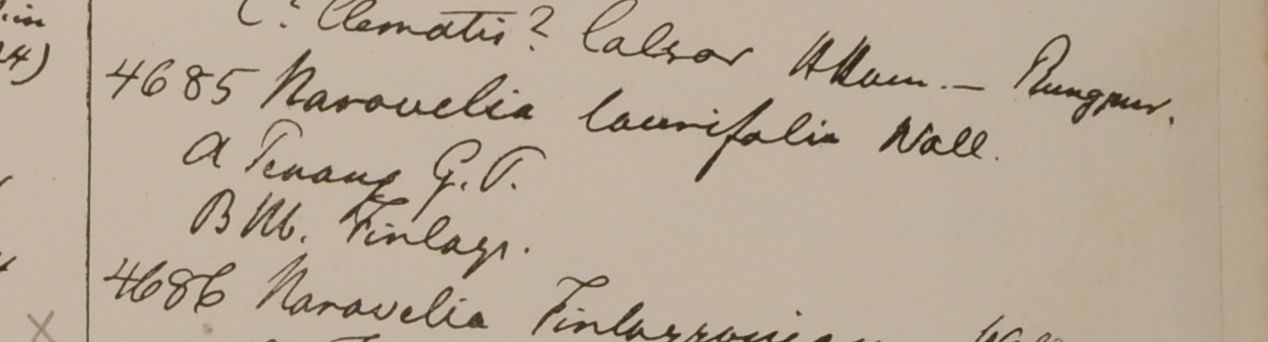 in
4)
C? Clematis? Calsor HHam. — Rungpur.
4685 Naravelia laurifolia Wall.
a Penang G.P.
B Hb. Finlays.
4686 Naravelia Finlaysoniana Wall